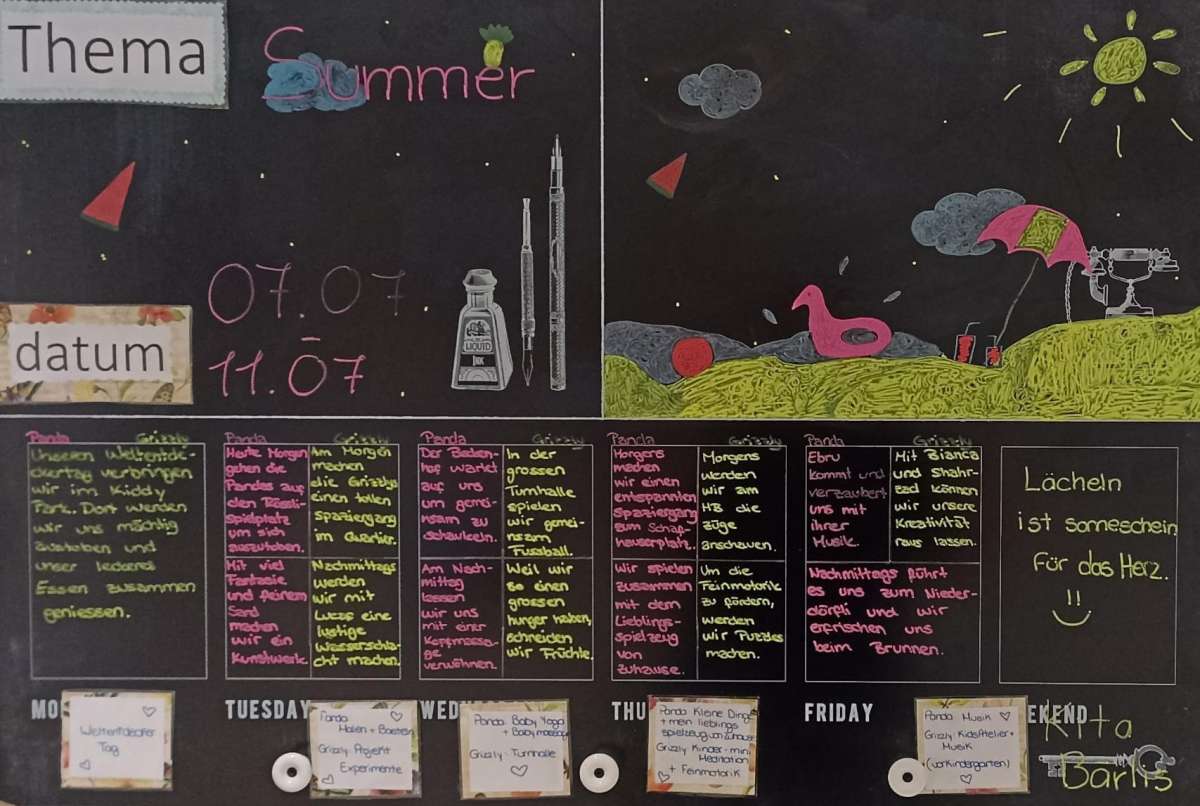 Thema
Summer
datum
07.07
-
11.07
LIQUID
INK
Panda Grizzly
Unseren Weltentde-
ckertag verbringen
wir im Kiddy
Park. Dort werden
wir uns mächtig
austoben und
unser leckeres
Essen zusammen
geniessen.
Panda
Heute Morgen
gehen die
Pandas auf
den Rössli-
spielplatz
um sich
auszutoben.
Grizzly
Am Morgen
machen
die Grizzlys
einen tollen
Spaziergang
im Quartier.
Mit viel
Fantasie
und feinem
Sand
machen
wir ein
Kunstwerk.
Nachmittags
werden
wir mit
Luca eine
lustige
Wasserschla-
cht machen.
Panda
Der Becken-
hof wartet
auf uns
um gemei-
nsam zu
schaukeln.
Grizzly
In der
grossen
Turnhalle
spielen
wir gemei-
nsam
Fussball.
Am Nach-
mittag
lassen
wir uns
mit einer
Kopfmassa-
ge
verwöhnen.
Weil wir
so einen
grossen
hunger haben,
schneiden
wir Früchte.
Panda
Morgens
machen
wir einen
entspannten
Spaziergang
zum Schaf-
hauserplatz.
Grizzly
Morgens
werden
wir am
HB die
züge
anschauen.
Wir spielen
zusammen
mit dem
Lieblings-
spielzeug
von
zuhause.
Um die
Feinmotorik
zu fördern,
werden
wir Puzzles
machen.
Panda
Ebru
kommt und
verzaubert
uns mit
ihrer
Musik.
Grizzly
Mit Bianca
und Shahr-
zad können
wir unsere
Kreativität
raus lassen.
Nachmittags führt
es uns zum Nieder-
dörfli und wir
erfrischen uns
beim Brunnen.
Lächeln
ist sonneschein
für das Herz.
MO
Weltentdecker
Tag
TUESDAY
Panda
Malen + Basteln
Grizzly: Projekt
Experimente
WED
Panda: Baby Yoga
+ Babymassage
Grizzly: Turnhalle
THU
Panda Kleine Dinge
+ mein lieblings
spielzeug von zuhause
Grizzly Kinder-min.
Meditation
+ Feinmotorik
FRIDAY
Panda Musik
Grizzly: KidsAtelier +
Musik
(vorkindergarten)
EKEND
Kita
Barlis